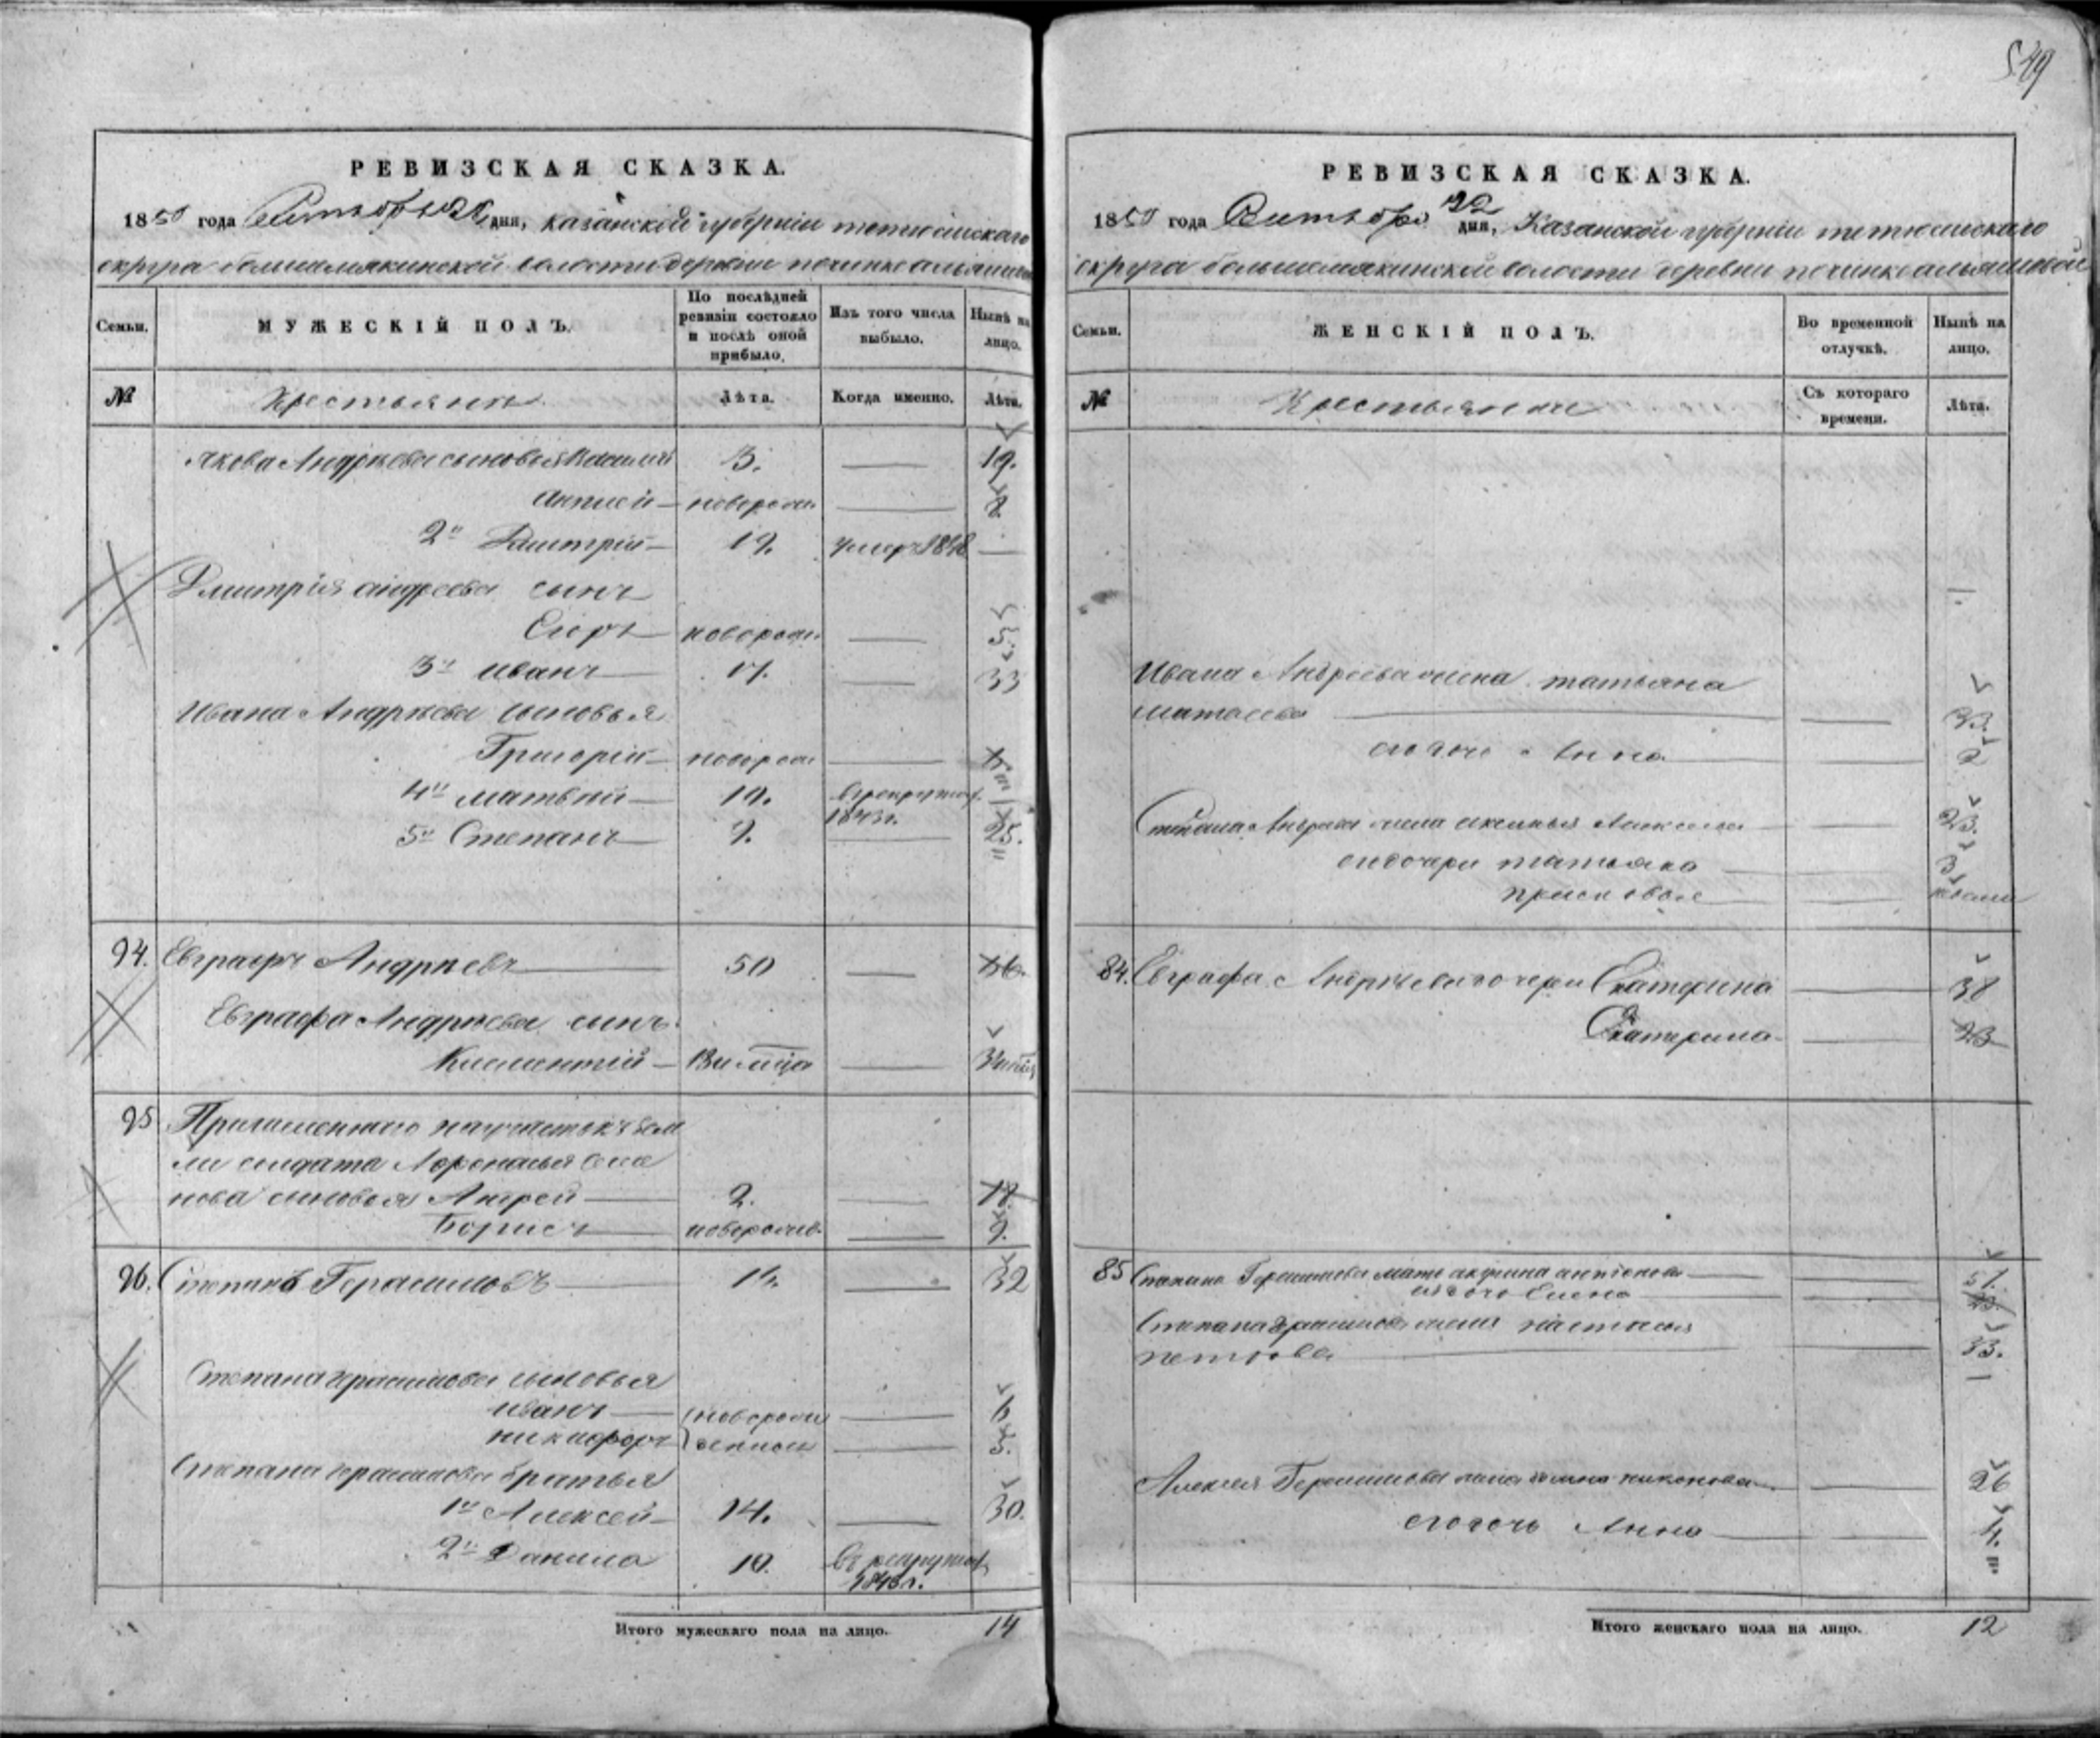 549
РЕВИЗСКАЯ СКАЗКА.
1850 года Октября 22 дня, Казанской губернiи тетюшскаго
округа большемякинской волости деревни починка
Семьи.
МУЖЕСКІЙ ПОЛЪ.
По послѣдней ревизіи состояло и послѣ оной прибыло.
Изъ того числа выбыло.
Нынѣ на лицо.
№
Крестьяне
Лѣта.
Когда именно.
Лѣта.
Якова Андреева сыновья Василий 3. 19.
новорож. 8.
2й Дмитрій 19. умеръ 1848
Дмитрія андреева сынъ
Егоръ новорож. 5.
3й иванъ 17. 33
Ивана Андреева сыновья
Григорій новорож
4й матвей 10. в рекрутах 1843г.
5й Степанъ 9. 25.
94. Евграфъ Андреевъ 50
Евграфа Андреева сынъ
95 солдата
сыновья Андрей 2. 18
Борисъ новорожд. 9.
96. Степанъ Герасимовъ 16. 32
Степана герасимова сыновья
иванъ новорож 6
никифоръ 5.
Степана герасимова братья
1й Алексей 14. 30.
2й Данила 10. въ рекрутах 1843г.
Итого мужескаго пола на лицо. 14
РЕВИЗСКАЯ СКАЗКА.
1850 года Октября 22 дня, Казанской губернiи тетюшскаго
округа большемякинской волости деревни починка
Семьи.
ЖЕНСКІЙ ПОЛЪ.
Во временной отлучкѣ.
Нынѣ на лицо.
№
Крестьяне
Съ котораго времени.
Лѣта.
Ивана Андреева жена татьяна
матвеева 33.
его дочь Анна 2
Степана Андреева жена 23.
его дочери татьяна 3
84. Евграфа Андреева дочери Екатерина 38
Екатерина 23
85 Степана Герасимова мать 51.
Елена 23
Степана герасимова жена настасья
петрова 33.
Алексея Герасимова жена 26
его дочь Анна 4.
Итого женскаго пола на лицо. 12